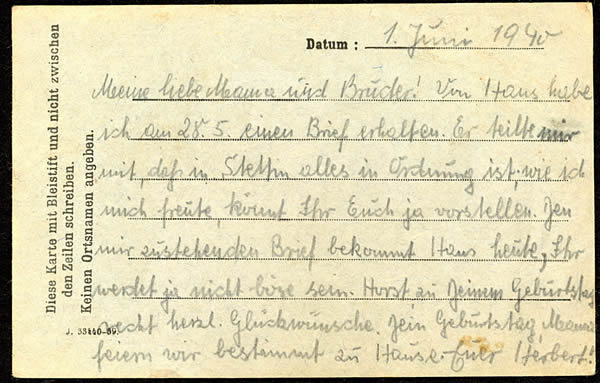 Diese Karte mit Bleistift und nicht zwischen
den Zeilen schreiben.
Keinen Ortsnamen angeben.
Datum : 1. Juni 1940
Meine liebe Mama und Brüder! Von Hans habe
ich am 28.5. einen Brief erhalten. Er teilte mir
mit, daß in Stettin alles in Ordnung ist, wie ich
mich freute, könnt Ihr Euch ja vorstellen. Den
mir zustehenden Brief bekommt Hans heute, Ihr
werdet ja nicht böse sein. Horst, zu Deinem Geburtstag
recht herzl. Glückwünsche. Dein Geburtstag, Mama
feiern wir bestimmt zu Hause. Euer Herbert!
J. 33440-39.